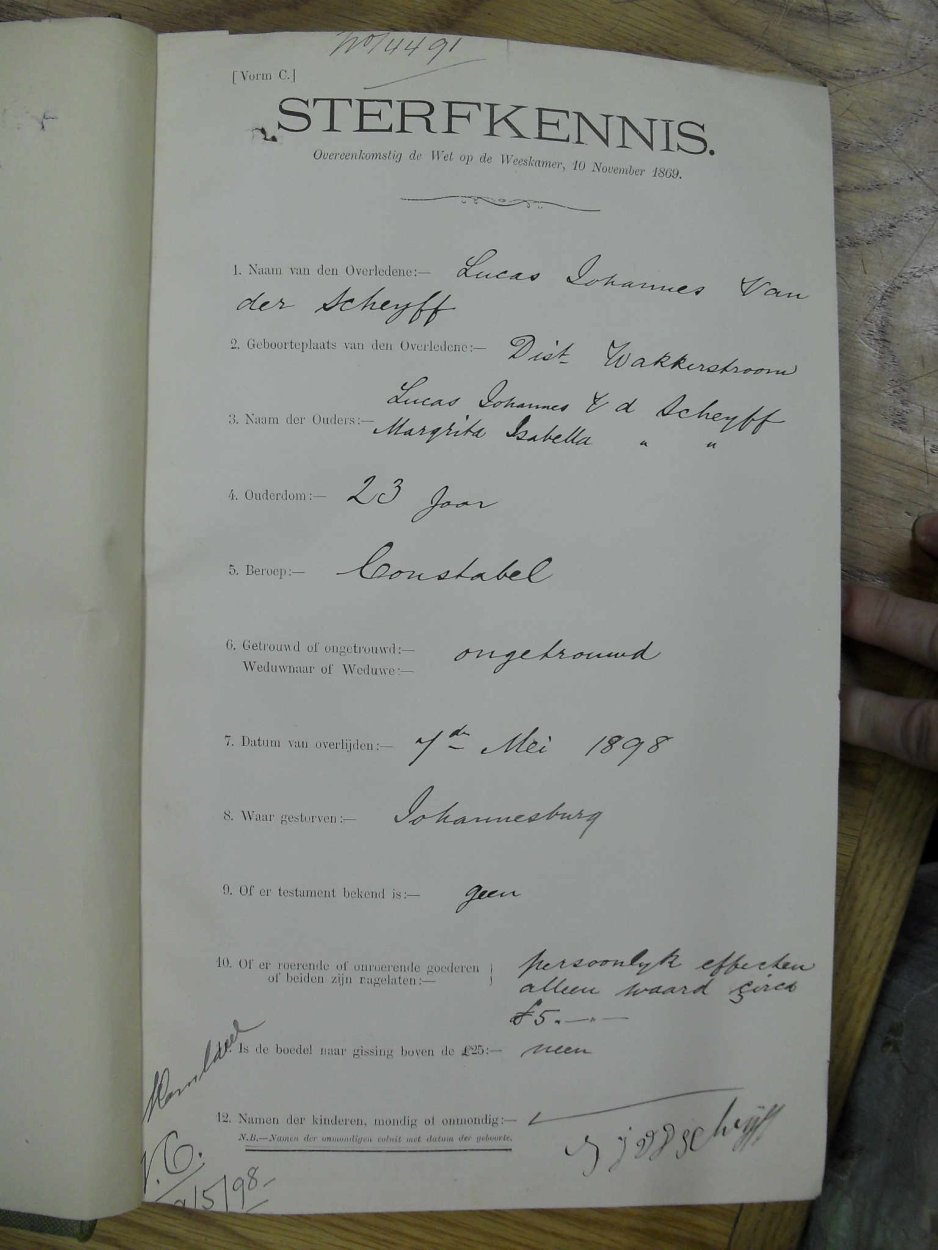 No 14491
[Vorm C.]
STERFKENNIS.
Overeenkomstig de Wet op de Weeskamer, 10 November 1869.
1. Naam van den Overledene:— Lucas Johannes Van
der Scheyff
2. Geboorteplaats van den Overledene:— Dist. Wakkerstroom
Lucas Johannes V d Scheyff
3. Naam der Ouders:— Margrita Isabella " "
4. Ouderdom:— 23 Jaar
5. Beroep:— Constabel
6. Getrouwd of ongetrouwd:— ongetrouwd
Weduwnaar of Weduwe:—
7. Datum van overlijden:— 7de Mei 1898
8. Waar gestorven:— Johannesburg
9. Of er testament bekend is:— geen
10. Of er roerende of onroerende goederen } persoonlyk effecten
of beiden zijn nagelaten:— alleen waard circa
£5.—"—
Is de boedel naar gissing boven de £25:— neen
12. Namen der kinderen, mondig of onmondig:—
N.B.—Namen der onmondigen voluit met datum der geboorte.
9/5/98